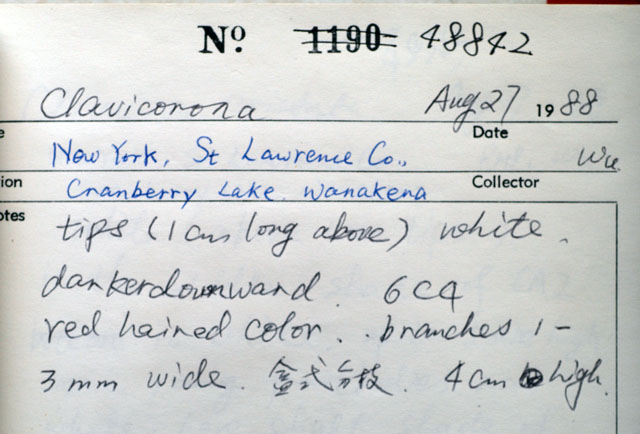 Nº 1190 48842
Clavicorona Aug 27 1988
e Date
New York, St Lawrence Co., Wu
ion Cranberry Lake. Wanakena Collector
otes tips (1 cm long above) white.
darkerdownward. 6C4
red haired color. branches 1-
3 mm wide. 盒式分枝. 4 cm high.